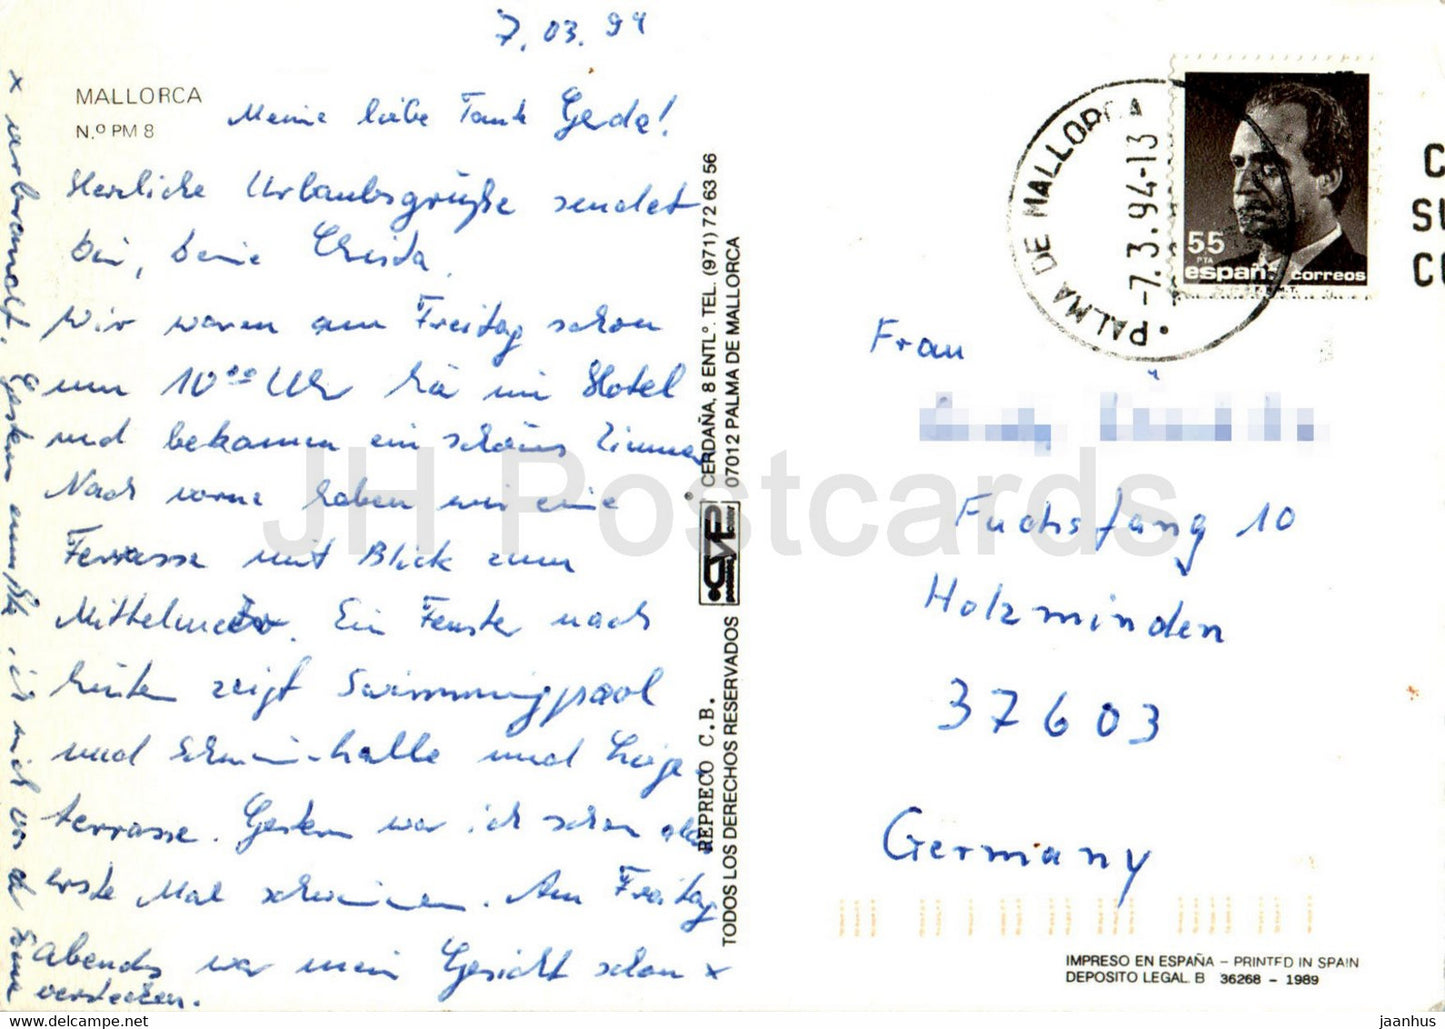 7.03.94
MALLORCA
N.º PM 8
Meine liebe Tante Gerda!
Herzliche Urlaubsgrüße sendet
Dir, Deine Christa.
Wir waren am Freitag schon
um 10⁰⁰ Uhr hier im Hotel
und bekamen ein schönes Zimmer
Nach vorne haben wir eine
Terrasse mit Blick zum
Mittelmeer. Ein Fenster nach
hinten zeigt Swimmingpool
und Schwimmhalle und Liege-
terrasse. Gestern war ich schon das
erste Mal schwimmen. Am Freitag
Abends war mein Gesicht schon x
x verbrannt. Gestern mußte ich mich vor der Sonne
verstecken.
CERDAÑA, 8 ENTLº. TEL. (971) 72 63 56
07012 PALMA DE MALLORCA
REPRECO C.B.
TODOS LOS DERECHOS RESERVADOS
PALMA DE MALLORCA
-7.3.94-13
55
PTA
españa
correos
F.N.M.T.
C
SU
CO
Frau
Fuchsfang 10
Holzminden
37603
Germany
IMPRESO EN ESPAÑA - PRINTED IN SPAIN
DEPOSITO LEGAL B 36268 - 1989
JH Postcards
https://www.delcampe.net
jaanhus